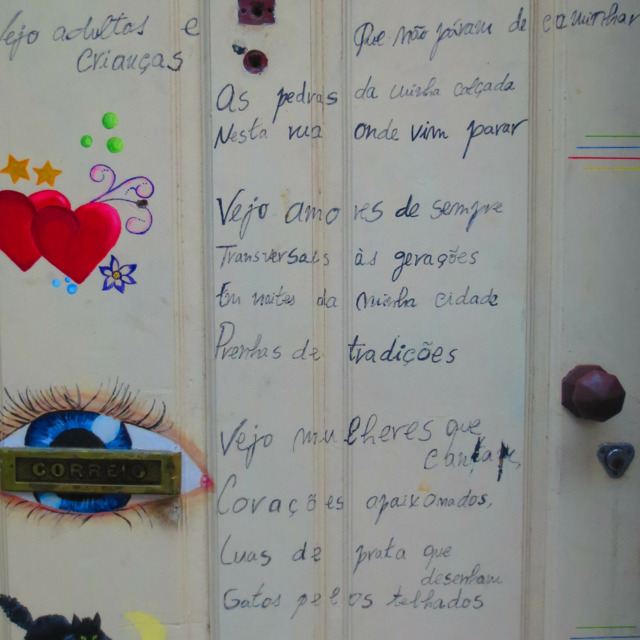 Vejo adultos e
crianças
Que não páram de caminhar
As pedras da minha calçada
Nesta rua onde vim parar
Vejo amores de sempre
Transversais às gerações
Em noites da minha cidade
Prenhas de tradições
Vejo mulheres que
cantam,
Corações apaixonados,
Luas de prata que
desenham
Gatos pelos telhados
CORREIO